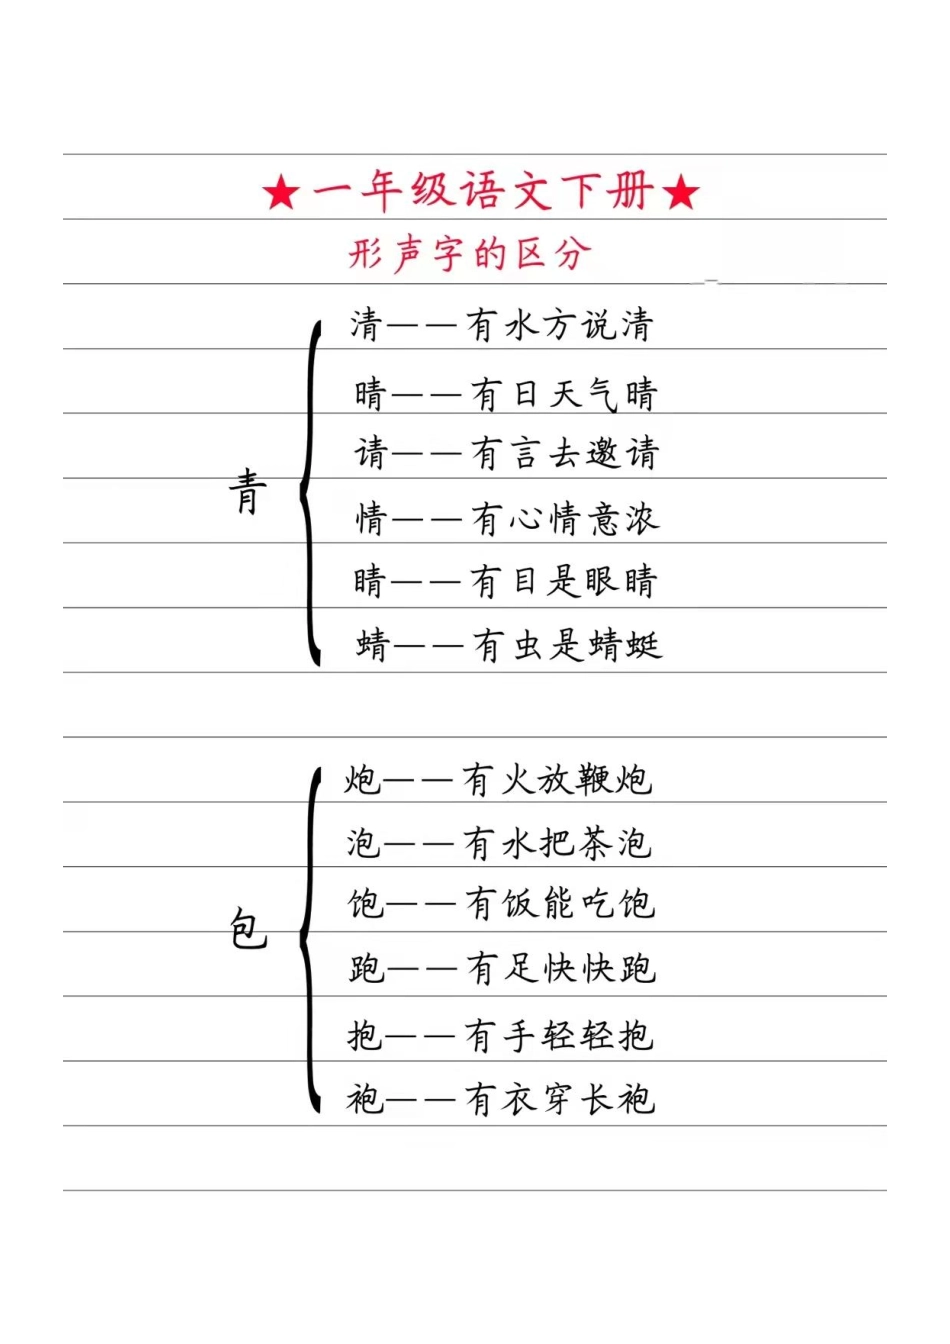 ★一年级语文下册★
形声字的区分
青
清——有水方说清
晴——有日天气晴
请——有言去邀请
情——有心情意浓
睛——有目是眼睛
蜻——有虫是蜻蜓
包
炮——有火放鞭炮
泡——有水把茶泡
饱——有饭能吃饱
跑——有足快快跑
抱——有手轻轻抱
袍——有衣穿长袍